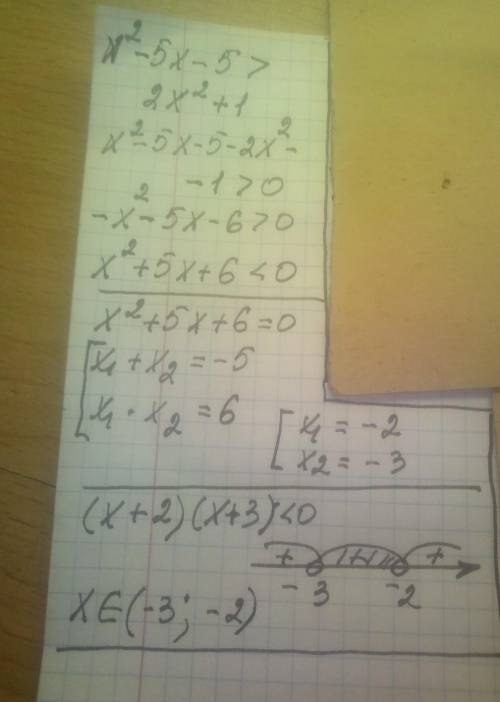 x²-5x-5>
2x²+1
x²-5x-5-2x²-
-1>0
-x²-5x-6>0
x²+5x+6<0
x²+5x+6=0
[x₁+x₂=-5
x₁·x₂=6
[x₁=-2
x₂=-3
(x+2)(x+3)<0
+ +
-3 -2
x∈(-3; -2)